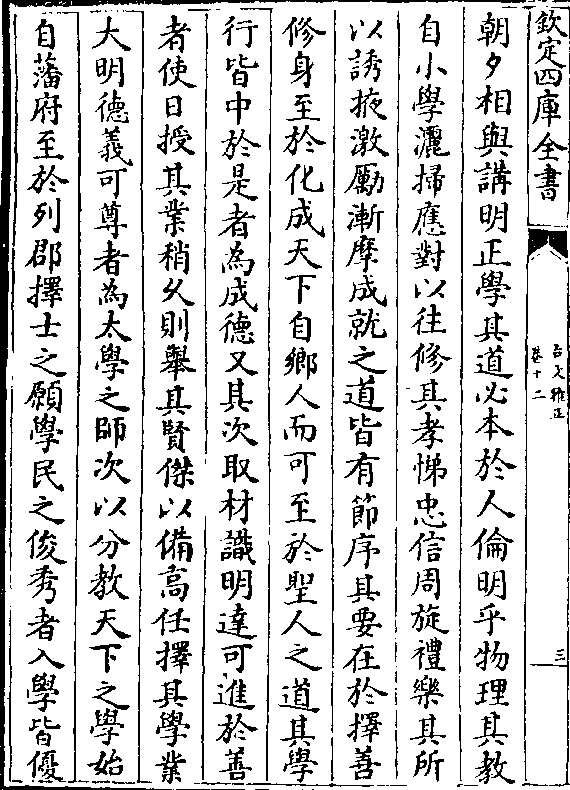 欽定四庫全書
古文雅正
卷十二
三
朝夕相與講明正學其道必本於人倫明乎物理其教
自小學灑掃應對以往修其孝悌忠信周旋禮樂其所
以誘掖激厲漸摩成就之道皆有節序其要在於擇善
修身至於化成天下自鄉人而可至於聖人之道其學
行皆中於是者為成德又其次取材識明達可進於善
者使日授其業稍久則舉其賢傑以備高任擇其學業
大明德義可尊者為太學之師次以分教天下之學始
自藩府至於列郡擇士之願學民之俊秀者入學皆優